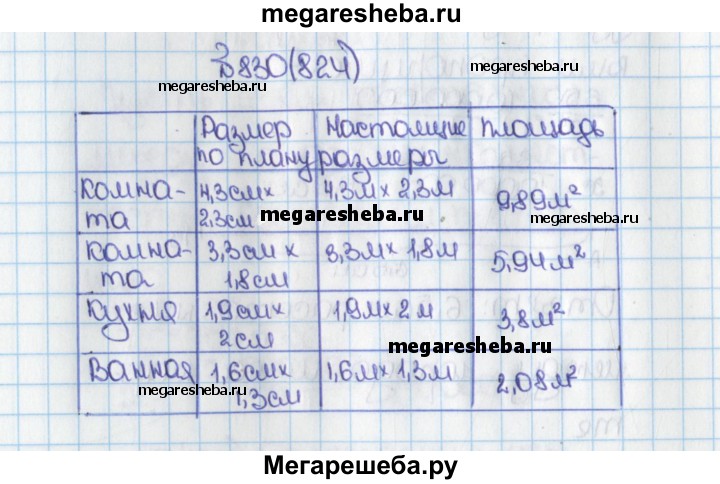 megaresheba.ru
№830(824)
megaresheba.ru
megaresheba.ru
Размер по плану
Настоящие размеры
площадь
комна-
та
4,3см×
2,3см
4,3м× 2,3м
9,89м²
megaresheba.ru
megaresheba.ru
комна-
та
3,3см ×
1,8см
3,3м× 1,8м
5,94м²
кухня
1,9см×
2см
1,9м× 2м
3,8м²
megaresheba.ru
Ванная
1,6см×
1,3см
1,6м× 1,3м
2,08м²
megaresheba.ru
megaresheba.ru
Мегарешеба.ру